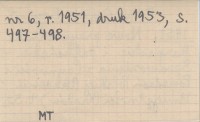 nr 6, r. 1951, druk 1953, s.
497-498.
MT